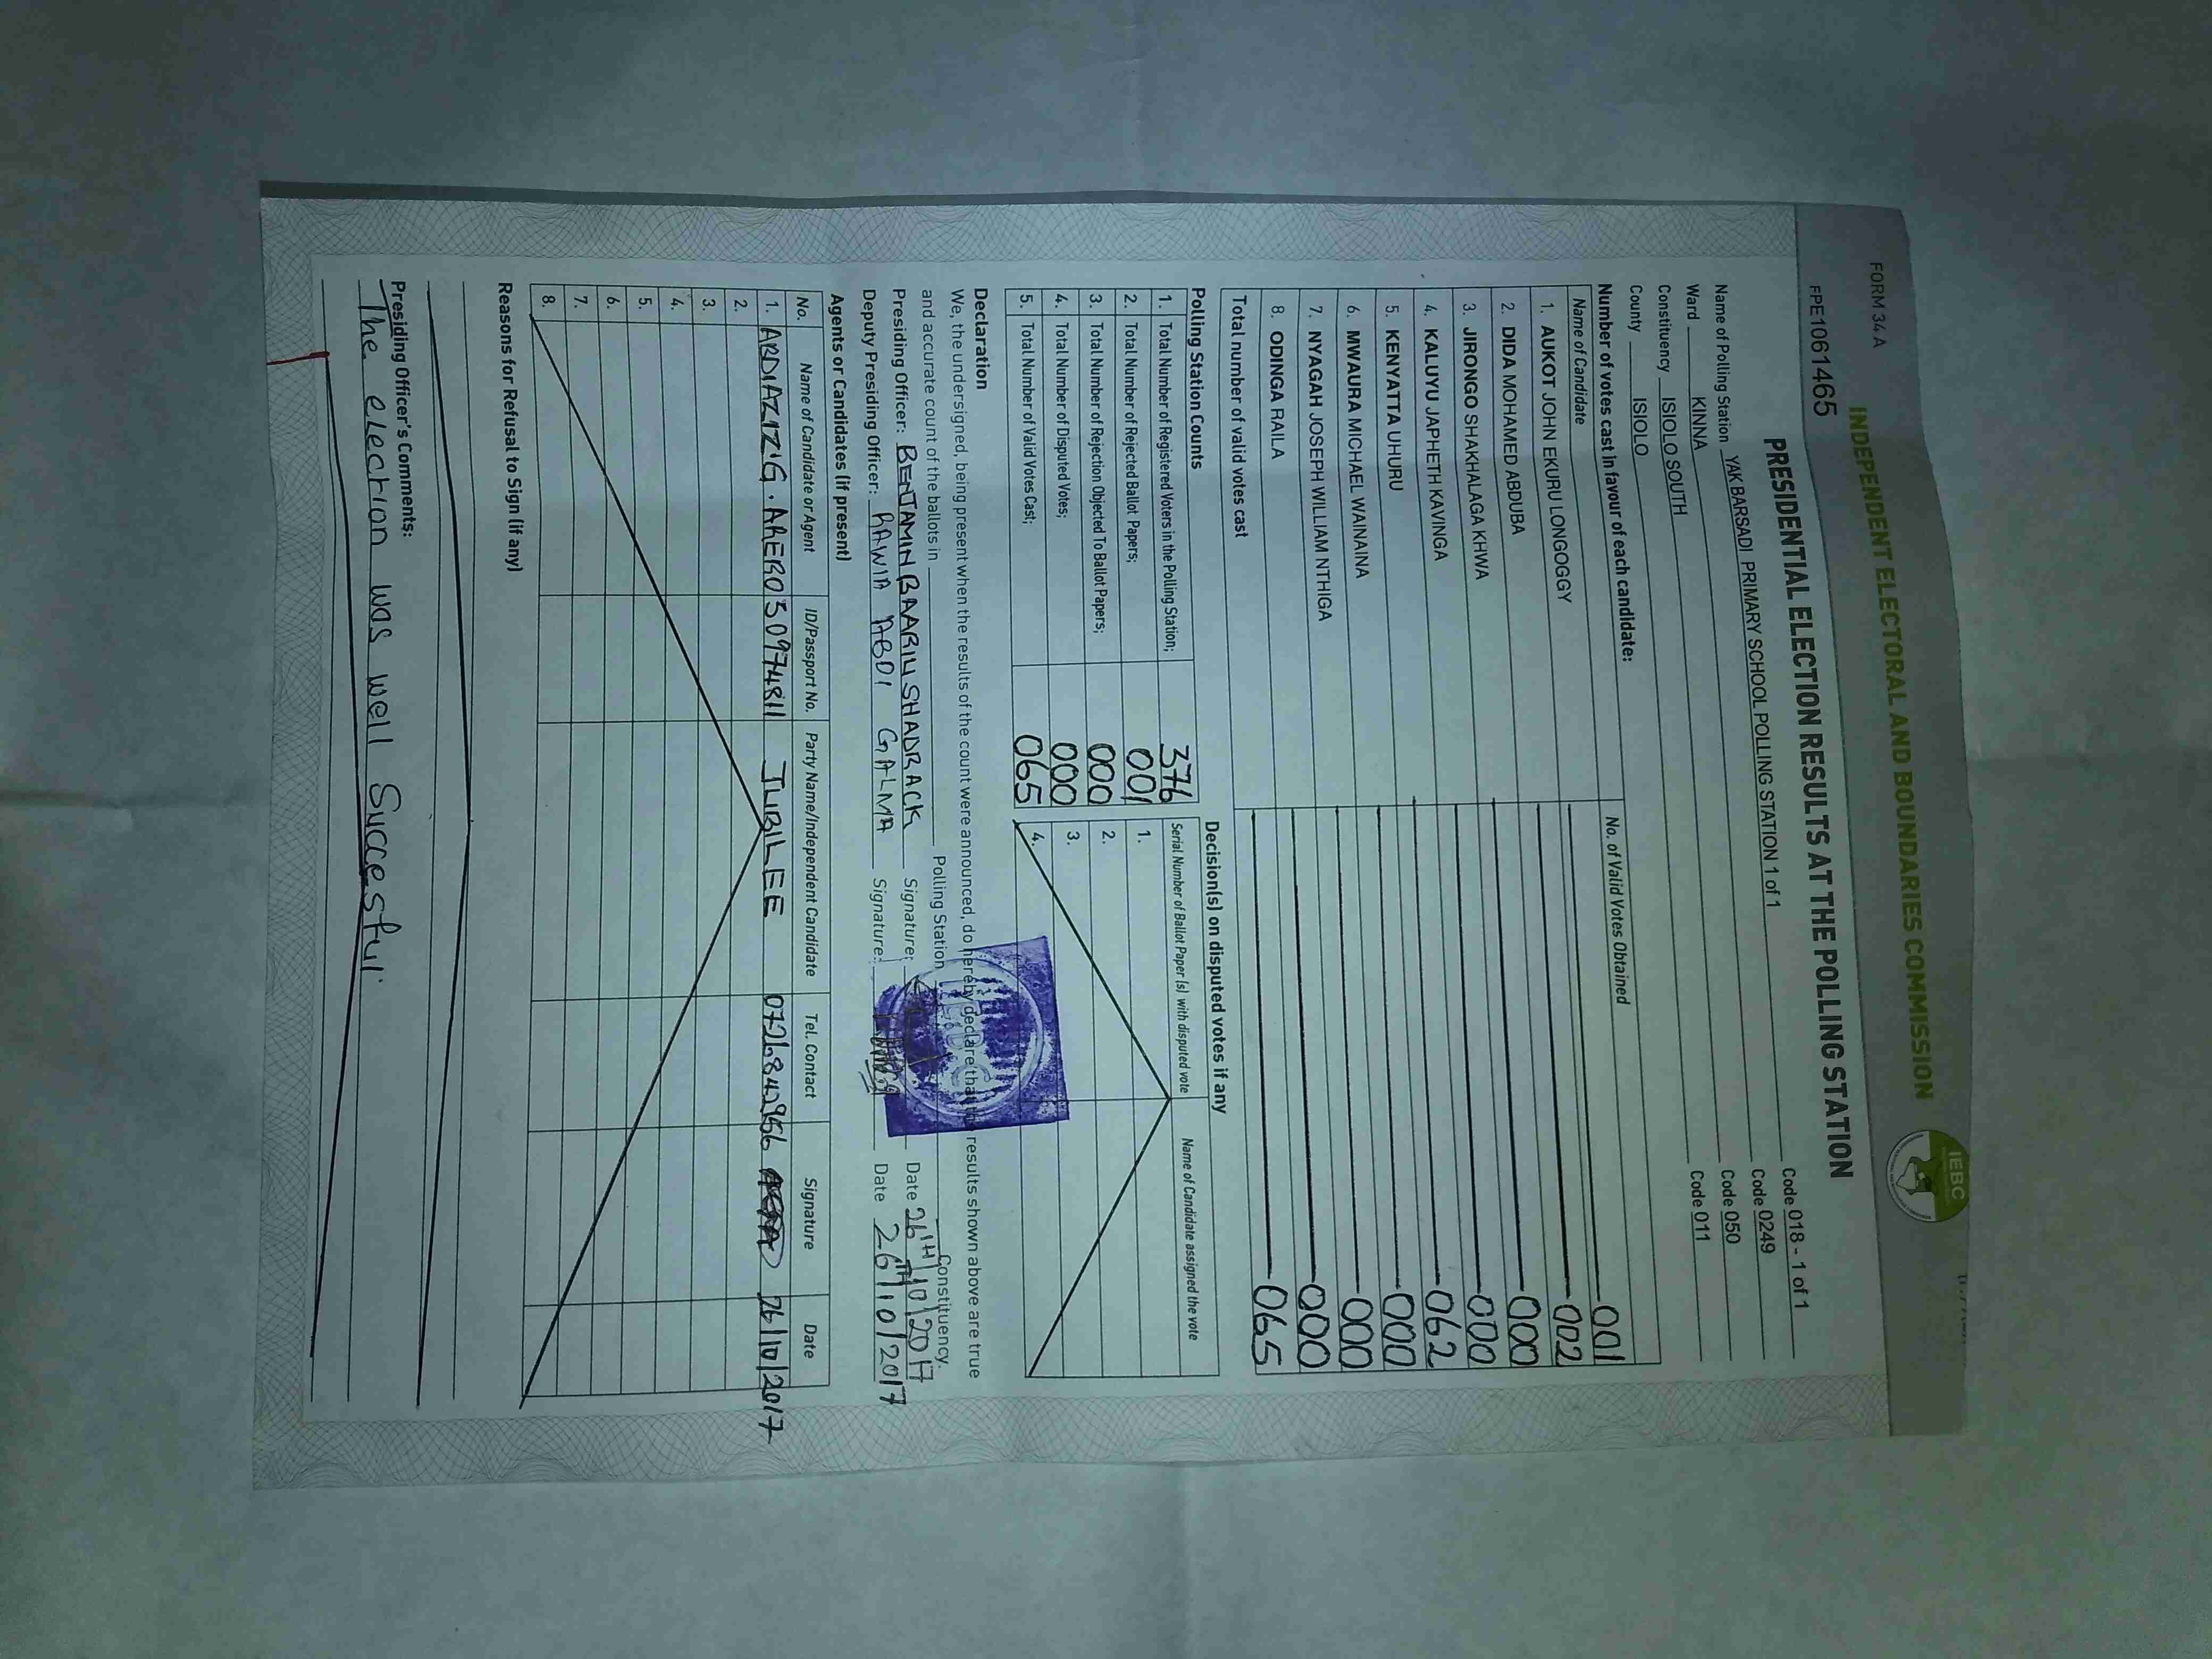 FORM 34 A
INDEPENDENT ELECTORAL AND BOUNDARIES COMMISSION
IEBC
FPE1061465
PRESIDENTIAL ELECTION RESULTS AT THE POLLING STATION
Name of Polling Station YAK BARSADI PRIMARY SCHOOL POLLING STATION 1 of 1 Code 018 - 1 of 1
Ward KINNA Code 0249
Constituency ISIOLO SOUTH Code 050
County ISIOLO Code 011
Number of votes cast in favour of each candidate:
Name of Candidate No. of Valid Votes Obtained
1. AUKOT JOHN EKURU LONGOGGY 001
2. DIDA MOHAMED ABDUBA 002
3. JIRONGO SHAKHALAGA KHWA 000
4. KALUYU JAPHETH KAVINGA 000
5. KENYATTA UHURU 062
6. MWAURA MICHAEL WAINAINA 000
7. NYAGAH JOSEPH WILLIAM NTHIGA 000
8. ODINGA RAILA 000
Total number of valid votes cast 065
Polling Station Counts
1. Total Number of Registered Voters in the Polling Station; 376
2. Total Number of Rejected Ballot Papers; 001
3. Total Number of Rejection Objected To Ballot Papers; 000
4. Total Number of Disputed Votes; 000
5. Total Number of Valid Votes Cast; 065
Decision(s) on disputed votes if any
Serial Number of Ballot Paper (s) with disputed vote Name of Candidate assigned the vote
1.
2.
3.
4.
Declaration
We, the undersigned, being present when the results of the count were announced, do hereby declare that the results shown above are true
and accurate count of the ballots in Polling Station Constituency.
Presiding Officer: BENJAMIN BAARIU SHADRACK Signature: Date 26TH/10/2017
Deputy Presiding Officer: RAWIA ABDI GALMA Signature: Date 26TH/10/2017
Agents or Candidates (if present)
No. Name of Candidate or Agent ID/Passport No. Party Name/Independent Candidate Tel. Contact Signature Date
1. ABDIAZIZ G. ARERO 30974811 JUBILEE 26/10/2017
2.
3.
4.
5.
6.
7.
8.
Reasons for Refusal to Sign (if any)
Presiding Officer's Comments:
The election was well Successful.